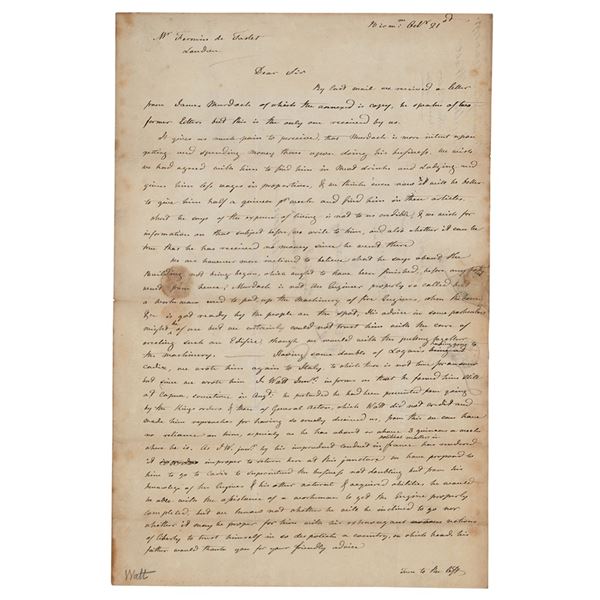 Birm.m Oct.r 21st
Mr Fermin de Tastet
London
Dear Sir
By last mail we received a letter
from James Murdoch of which the annexed is copy, he speaks of two
former letters but this is the only one received by us.
It gives us much pain to perceive, that Murdoch is more intent upon
getting and spending money than upon doing his business, we wish
we had agreed with him to find him in Meat drink and Lodging and
given him less wages in proportion, & we think even now it will be better
to give him half a guinea pr week and find him in these articles.
What he says of the expence of living is not to us credible, & we wish for
information on that subject before we write to him, and also whether it can be
true that he has received no money since he went there
We are however more inclined to believe what he says about the
Building not being begun, which ought to have been finished, before any
went from hence; Murdoch is not an Engineer properly so called but
a workman used to put up the Machinery of Fire Engines, when the house
&c is got ready by the people on the spot, His advice in some particulars
might be of use but we certainly could not trust him with the care of
erecting such an Edifice though we would with the putting together
the machinery. Having some doubts of Logan's making going to
Cadiz, we wrote him again to Italy, to which there is not time for answer
but since we wrote him J. Watt Junr. informs us that he found him still
at Capua, sometime in Augt. he pretended he had been prevented from going
by the Kings orders & those of General Acton, which Watt did not credit and
made him reproaches for having so cruelly deceived us, from this we can have
no reliance on him, especialy as he has about or above 3 guineas a week
where he is. As J.W. junr. by his imprudent conduct in political matters in france has rendered
it improper to return here at this juncture we have proposed to
him to go to Cadiz to superintend the business not doubting but from his
knowledge of the Engine & his other natural & acquired abilities he would
be able with the assistance of a workman to get the Engine properly
completed, but we know not whether he will be inclined to go nor
whether it may be proper for him with his extravagant notions
of liberty to trust himself in so despotick a country, on which head, his
father would thank you for your friendly advice
turn to the left
Watt